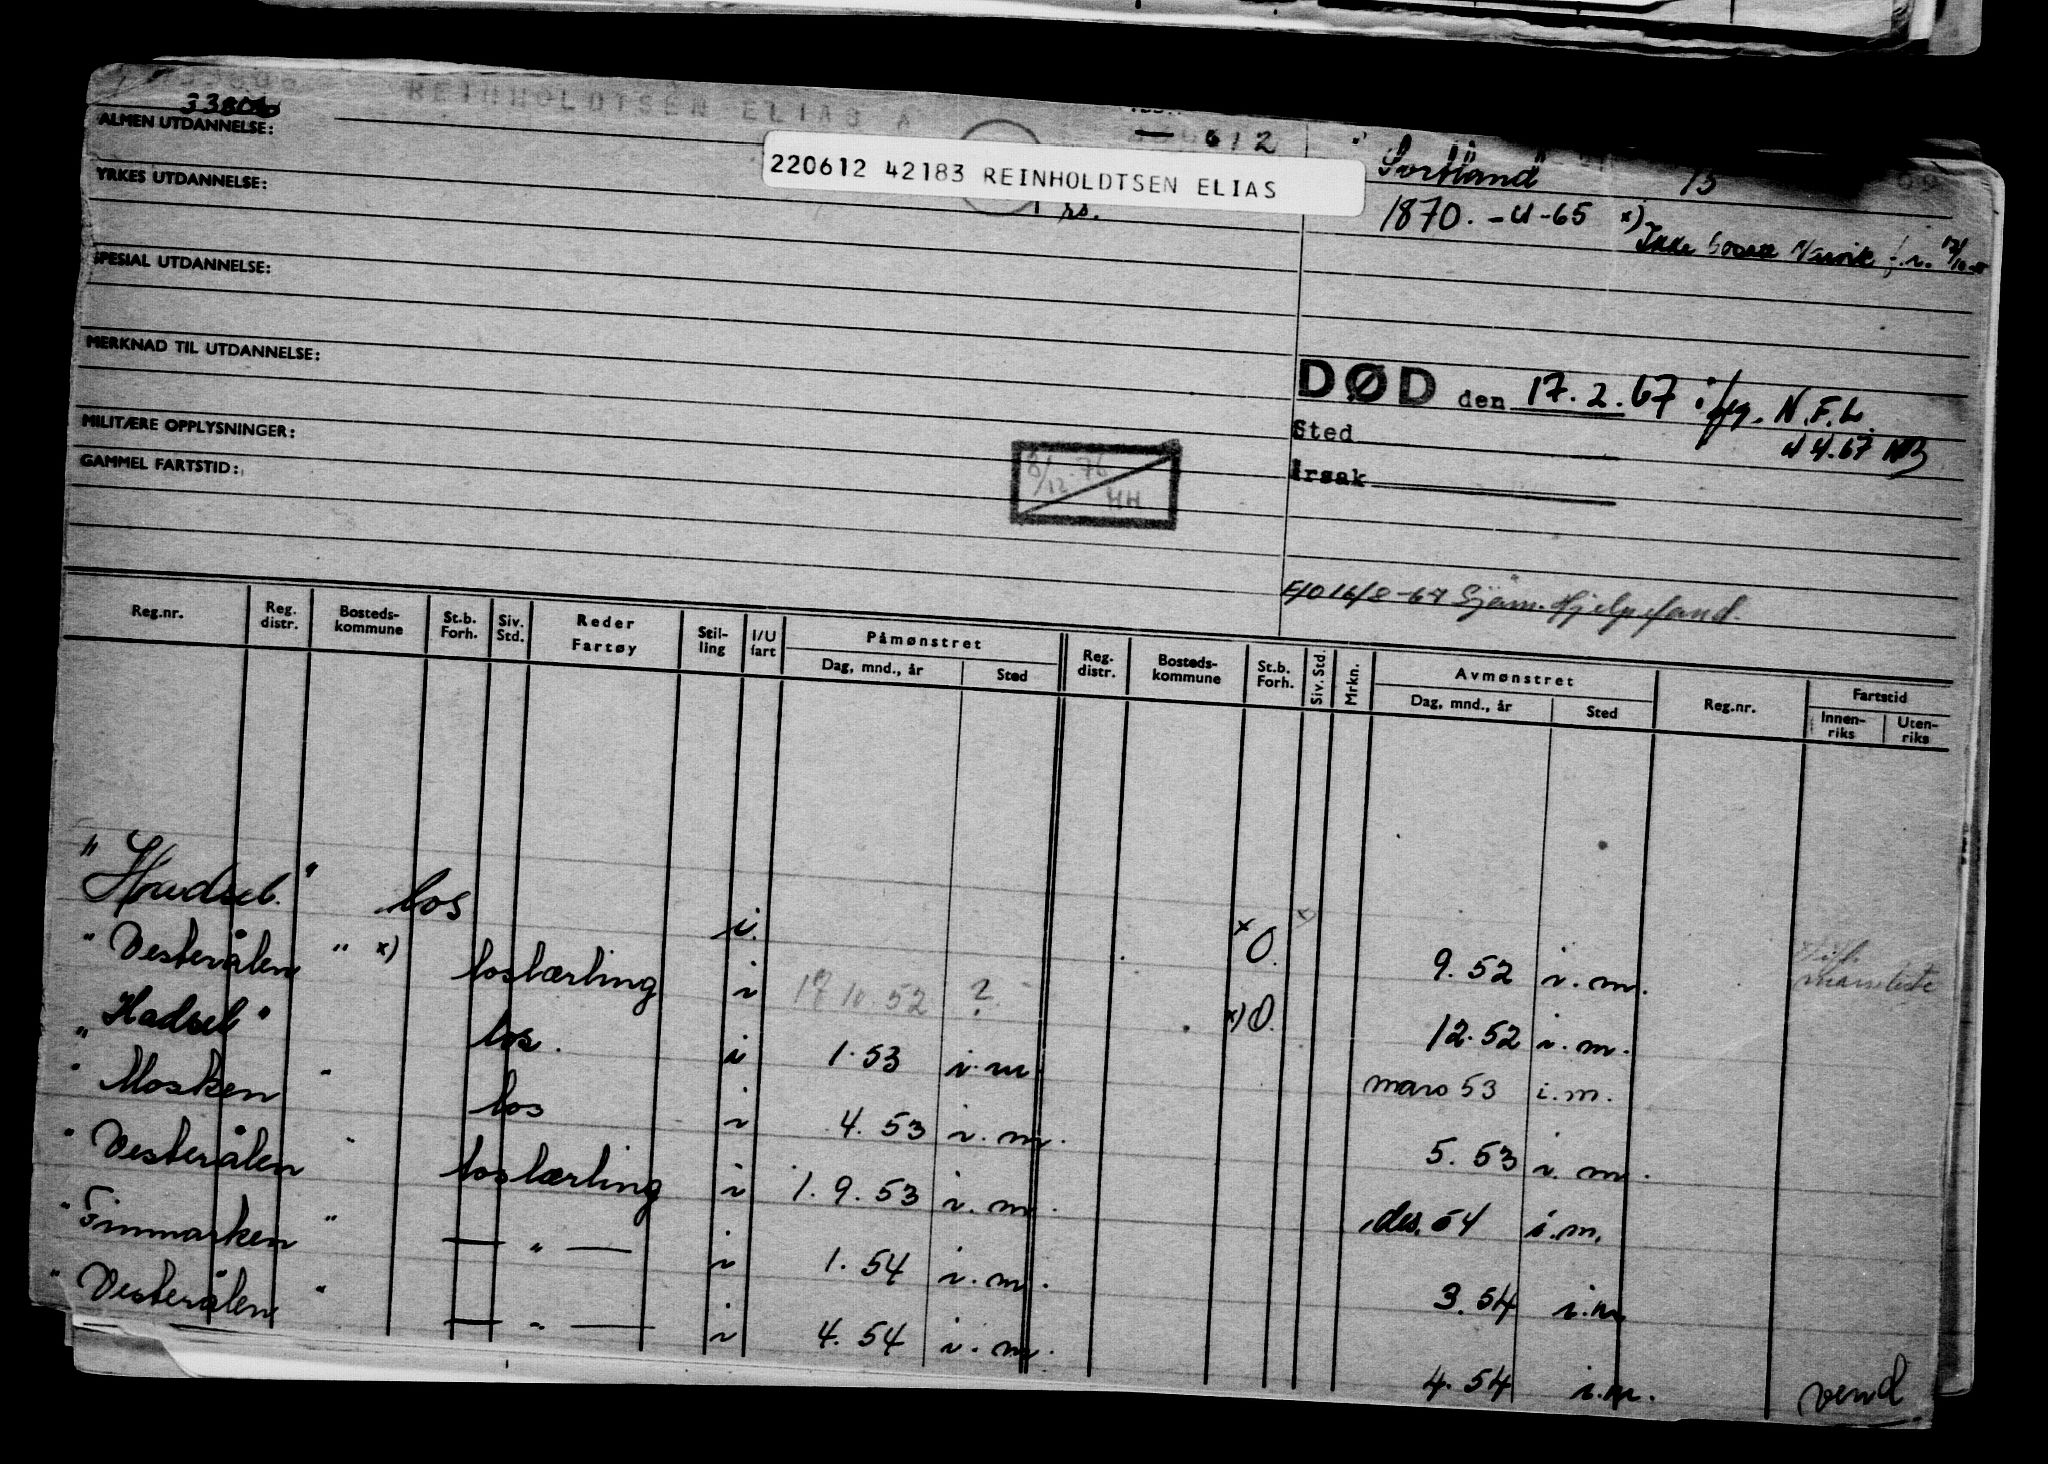 REINHOLDTSEN ELIAS A
ALMEN UTDANNELSE:
612
220612 42183 REINHOLDTSEN ELIAS
"Sortland" 15
YRKES UTDANNELSE:
1870. - 4-65 x)
Ikke
SPESIAL UTDANNELSE:
MERKNAD TIL UTDANNELSE:
DØD den 17.2.67 N.F.L.
4.67
Sted
MILITÆRE OPPLYSNINGER:
Årsak
GAMMEL FARTSTID:
8/12.76
HH
16/8-67 Sjøm. Hjelpefond.
Reg.nr. Reg. distr. Bosteds-kommune St.b. Forh. Siv. Std. Reder Fartøy Stil-ling I/U fart Påmønstret Dag, mnd., år Sted Reg. distr. Bosteds-kommune St.b. Forh. Siv. Std. Mrkn. Avmønstret Dag, mnd., år Sted Reg.nr. Fartstid Innen-riks Uten-riks
"Hadsel" los i. x O. 9.52 i.m.
"Vesterålen" x) loslærling i 17 10 52 ? x) O. 12.52 i.m.
"Hadsel" los. i 1.53 i.m mars 53 i.m.
"Mosken" los i 4.53 i.m. 5.53 i.m.
"Vesterålen" loslærling i 1.9.53 i.m. des. 54 i.m.
"Finmarken" — " — i 1.54 i.m. 3.54 i.m
"Vesterålen" — " — i 4.54 i.m. 4.54 i.m.
vend